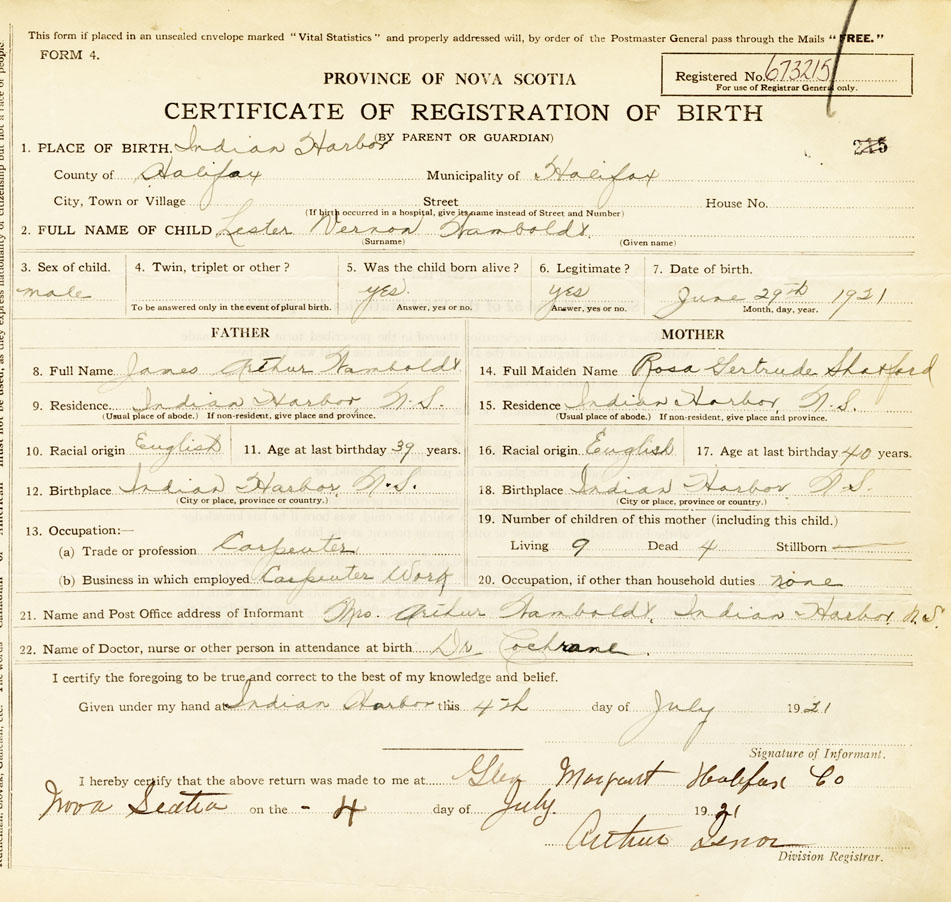 This form if placed in an unsealed envelope marked "Vital Statistics" and properly addressed will, by order of the Postmaster General pass through the Mails "FREE."
FORM 4.
PROVINCE OF NOVA SCOTIA
Registered No. 673215
For use of Registrar General only.
CERTIFICATE OF REGISTRATION OF BIRTH
(BY PARENT OR GUARDIAN)
1. PLACE OF BIRTH. Indian Harbor
County of Halifax Municipality of Halifax
City, Town or Village Street House No.
(If birth occurred in a hospital, give its name instead of Street and Number)
2. FULL NAME OF CHILD Lester Vernon Hamboldt.
(Surname) (Given name)
3. Sex of child. 4. Twin, triplet or other? 5. Was the child born alive? 6. Legitimate? 7. Date of birth.
male yes. yes June 29th 1921
To be answered only in the event of plural birth. Answer, yes or no. Answer, yes or no. Month, day, year.
FATHER MOTHER
8. Full Name James Arthur Hamboldt 14. Full Maiden Name Rosa Gertrude
9. Residence. Indian Harbor, N.S. 15. Residence Indian Harbor, N.S.
(Usual place of abode.) If non-resident, give place and province. (Usual place of abode.) If non-resident, give place and province.
10. Racial origin English 11. Age at last birthday 39 years. 16. Racial origin English 17. Age at last birthday 40 years.
12. Birthplace Indian Harbor, N.S. 18. Birthplace Indian Harbor N.S.
(City or place, province or country.) (City or place, province or country.)
13. Occupation:— 19. Number of children of this mother (including this child.)
(a) Trade or profession Carpenter Living 9 Dead 4 Stillborn —
(b) Business in which employed Carpenter Work 20. Occupation, if other than household duties none
21. Name and Post Office address of Informant Mrs. Arthur Hamboldt, Indian Harbor, N.S.
22. Name of Doctor, nurse or other person in attendance at birth. Dr. Cochrane.
I certify the foregoing to be true and correct to the best of my knowledge and belief.
Given under my hand at Indian Harbor this 4th day of July 1921
Signature of Informant.
I hereby certify that the above return was made to me at Glen Margaret Halifax Co
Nova Scotia on the - 4 day of July. 1921
Arthur
Division Registrar.